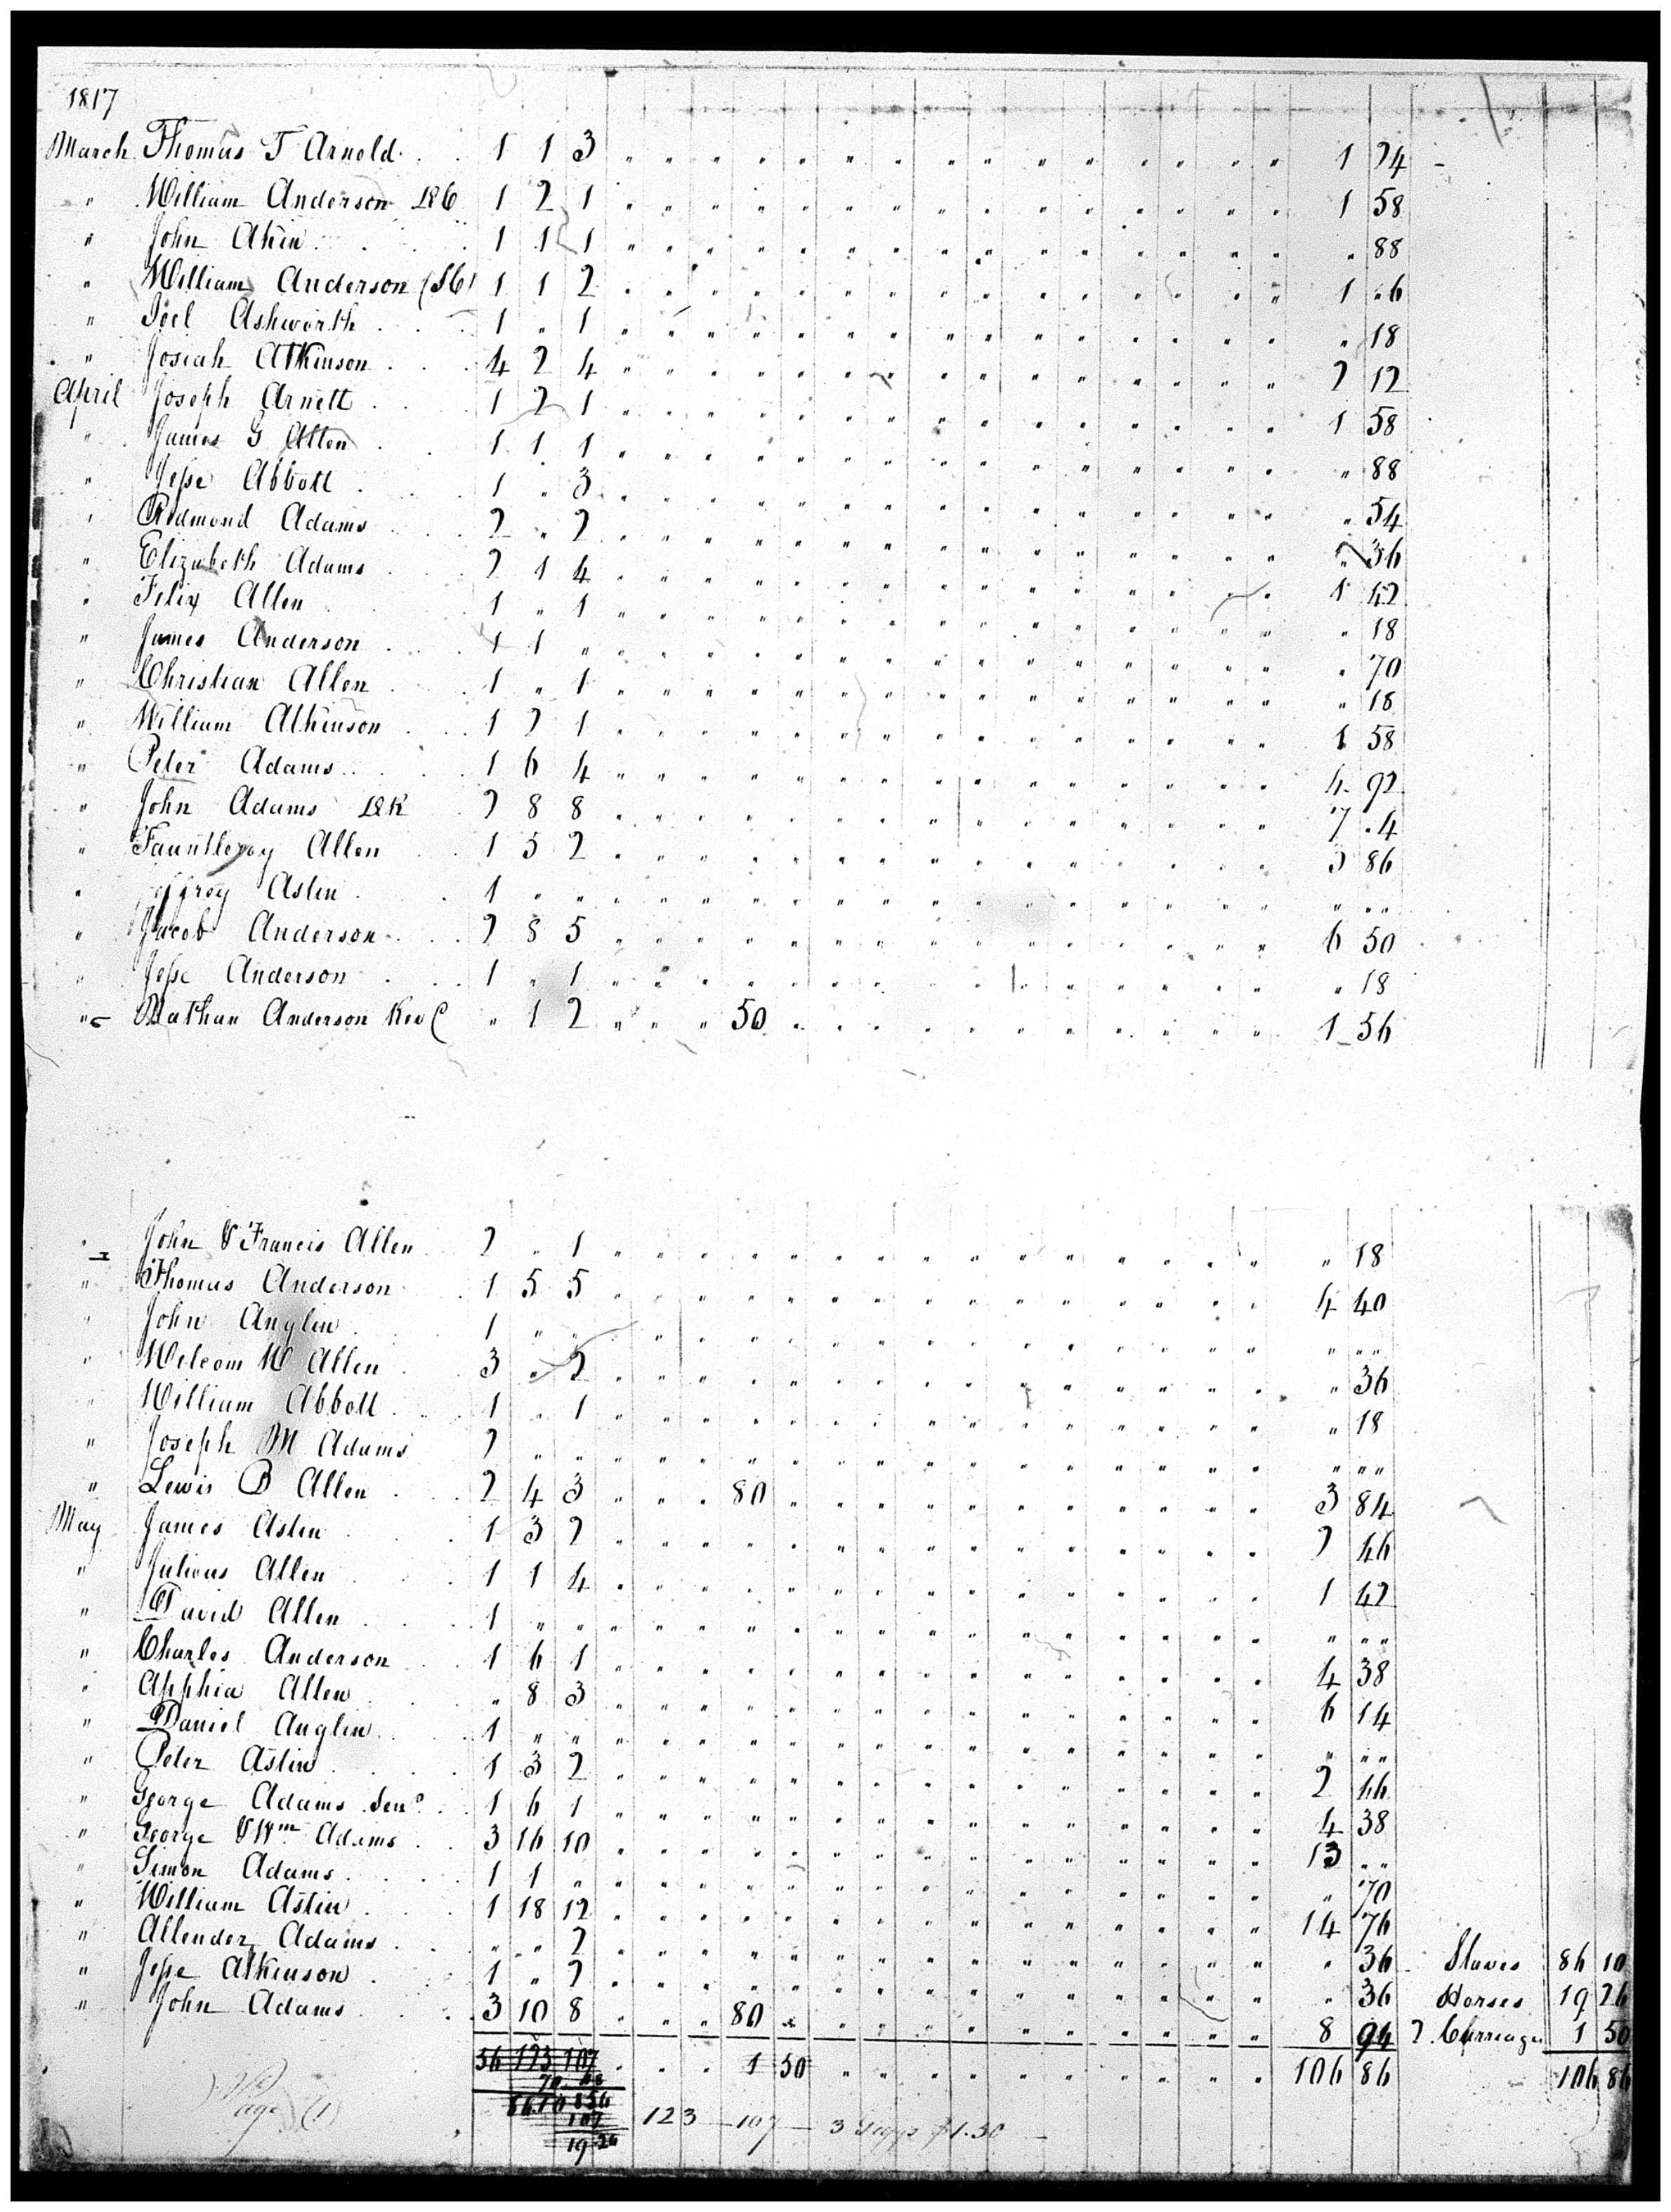 1817
March Thomas T Arnold 1 1 3 " " " " " " " " " " " " " " " 1 24
" William Anderson 1 2 1 " " " " " " " " " " " " " " " 1 58
" John Akin 1 1 1 " " " " " " " " " " " " " " " " 88
" William Anderson 1 1 2 " " " " " " " " " " " " " " " 1 "6
" Joel Ashworth 1 " 1 " " " " " " " " " " " " " " " " 18
" Josiah Atkinson 4 2 4 " " " " " " " " " " " " " " " 2 12
April Joseph Arnett 1 2 1 " " " " " " " " " " " " " " " 1 58
" James G Allen 1 1 1 " " " " " " " " " " " " " " " " 88
" Jesse Abbott 1 " 3 " " " " " " " " " " " " " " " " 54
" Redmond Adams 2 " 2 " " " " " " " " " " " " " " " " 36
" Elizabeth Adams 2 1 4 " " " " " " " " " " " " " " " 1 42
" Felix Allen 1 " 1 " " " " " " " " " " " " " " " " 18
" James Anderson 1 1 " " " " " " " " " " " " " " " " " 70
" Christian Allen 1 " 1 " " " " " " " " " " " " " " " " 18
" William Atkinson 1 2 1 " " " " " " " " " " " " " " " 1 58
" Peter Adams 1 6 4 " " " " " " " " " " " " " " " 4 92
" John Adams 2 8 8 " " " " " " " " " " " " " " " 7 "4
" Fauntleroy Allen 1 5 2 " " " " " " " " " " " " " " " 3 86
" Jeffrey Astin 1 " " " " " " " " " " " " " " " " " " " "
" Jacob Anderson 2 8 5 " " " " " " " " " " " " " " " 6 50
" Jesse Anderson 1 " 1 " " " " " " " " " " " " " " " " 18
" Nathan Anderson " 1 2 " " " 50 " " " " " " " " " " " 1 56
" John & Francis Allen 2 " 1 " " " " " " " " " " " " " " " " 18
" Thomas Anderson 1 5 5 " " " " " " " " " " " " " " " 4 40
" John Anglin 1 " " " " " " " " " " " " " " " " " " " "
" Welcom W Allen 3 " 2 " " " " " " " " " " " " " " " " 36
" William Abbott 1 " 1 " " " " " " " " " " " " " " " " 18
" Joseph M Adams 2 " " " " " " " " " " " " " " " " " " " "
" Lewis B Allen 2 4 3 " " " 80 " " " " " " " " " " " 3 84
May James Astin 1 3 2 " " " " " " " " " " " " " " " 2 46
" Julious Allen 1 1 4 " " " " " " " " " " " " " " " 1 42
" David Allen 1 " " " " " " " " " " " " " " " " " " " "
" Charles Anderson 1 6 1 " " " " " " " " " " " " " " " 4 38
" Apphia Allen " 8 3 " " " " " " " " " " " " " " " 6 14
" Daniel Anglin 1 " " " " " " " " " " " " " " " " " " " "
" Peter Astin 1 3 2 " " " " " " " " " " " " " " " 2 46
" George Adams Senr 1 6 1 " " " " " " " " " " " " " " " 4 38
" George & Wm Adams 3 16 10 " " " " " " " " " " " " " " " 13 " "
" Simon Adams 1 1 " " " " " " " " " " " " " " " " " 70
" William Astin 1 18 12 " " " " " " " " " " " " " " " 14 76
" Allender Adams " " 2 " " " " " " " " " " " " " " " " 36 Slaves 86 10
" Jesse Atkinson 1 " 2 " " " " " " " " " " " " " " " " 36 Horses 19 26
" John Adams 3 10 8 " " " 80 " " " " " " " " " " " 8 94 2 Carriages 1 50
56 123 107 " " " 1 50 " " " " " " " " " " 106 86 106 86
70
86.10 856
107
19 26
123 107 3 Giggs $1.30
Page (1)